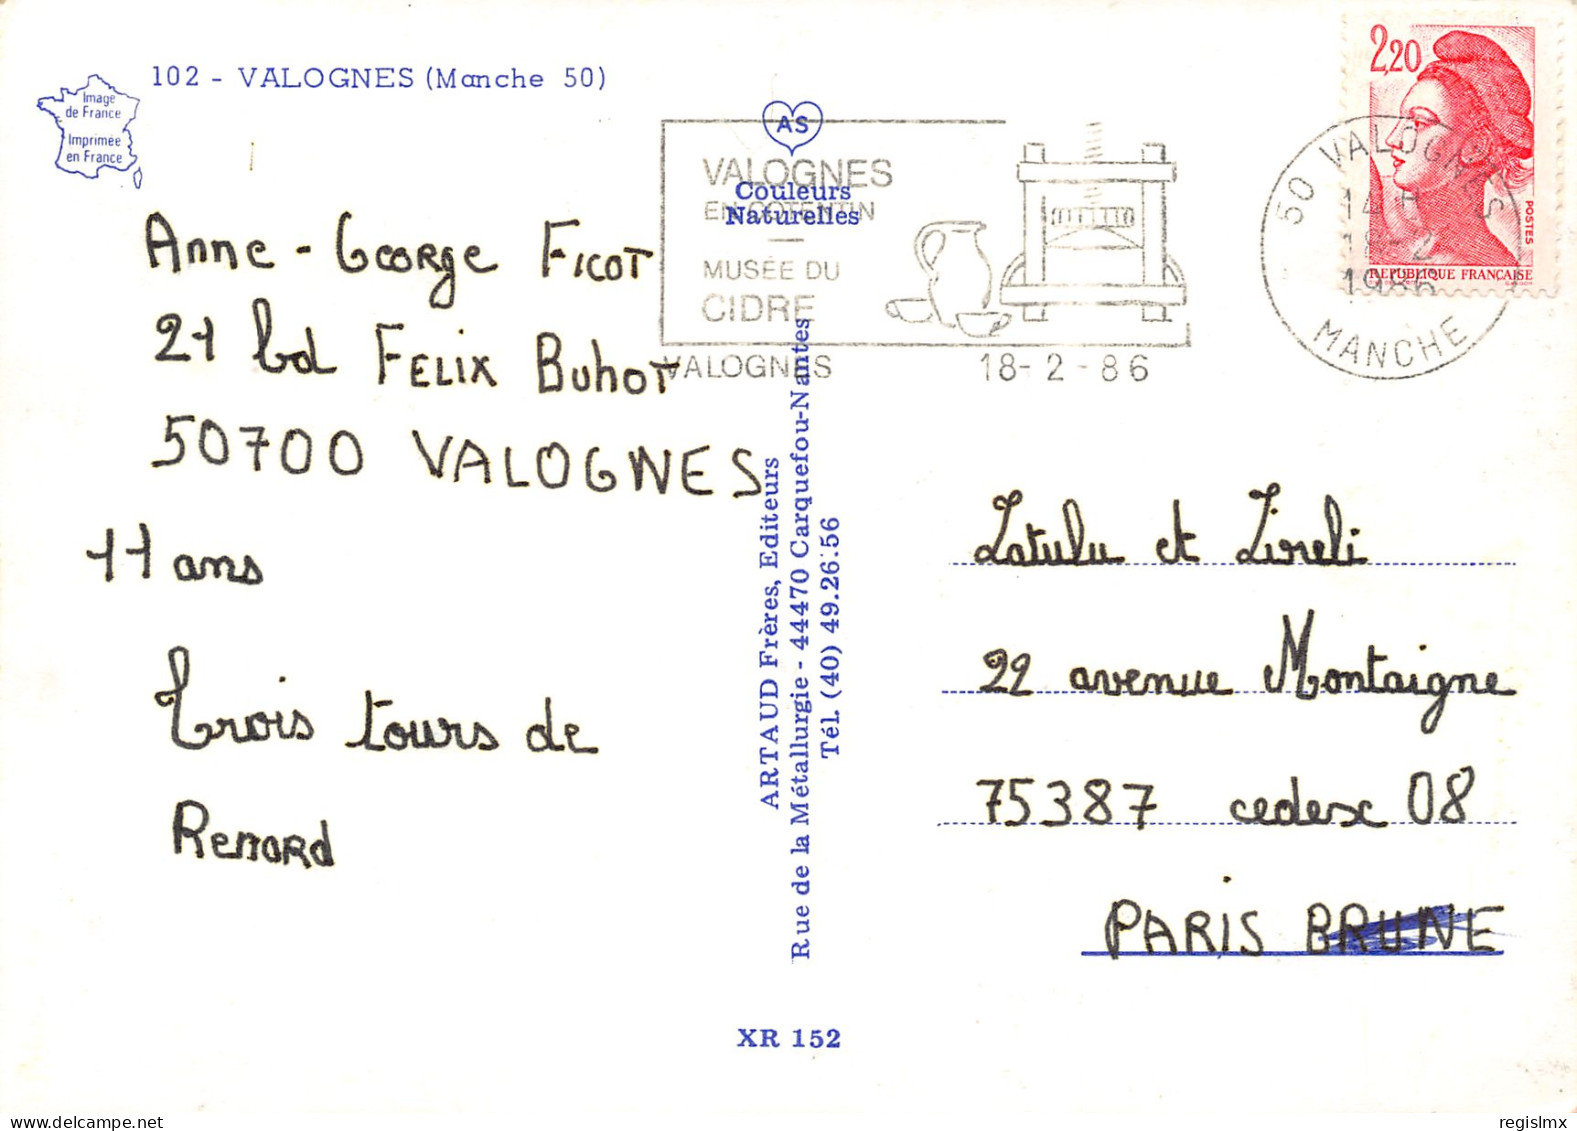 102 - VALOGNES (Manche 50)
Image
de France
Imprimée
en France
AS
Couleurs
Naturelles
VALOGNES
EN COTENTIN
MUSÉE DU
CIDRE
VALOGNES
18-2-86
50 VALOGNES
14 H
18-2
1986
MANCHE
2,20
POSTES
REPUBLIQUE FRANÇAISE
Anne-George Ficot
21 bd FELIX BuhoT
50700 VALOGNES
11 ans
Trois tours de
Renard
ARTAUD Frères, Editeurs
Rue de la Métallurgie - 44470 Carquefou-Nantes
Tél. (40) 49.26.56
Latulu et Lireli
22 avenue Montaigne
75387 cedex 08
PARIS BRUNE
XR 152
regislmx